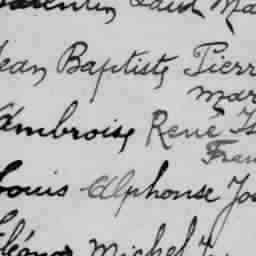 Jean Baptiste Pierr
Mar
Ambroise René Is
Fran
Louis Alphonse Jos
Eléonor Michel